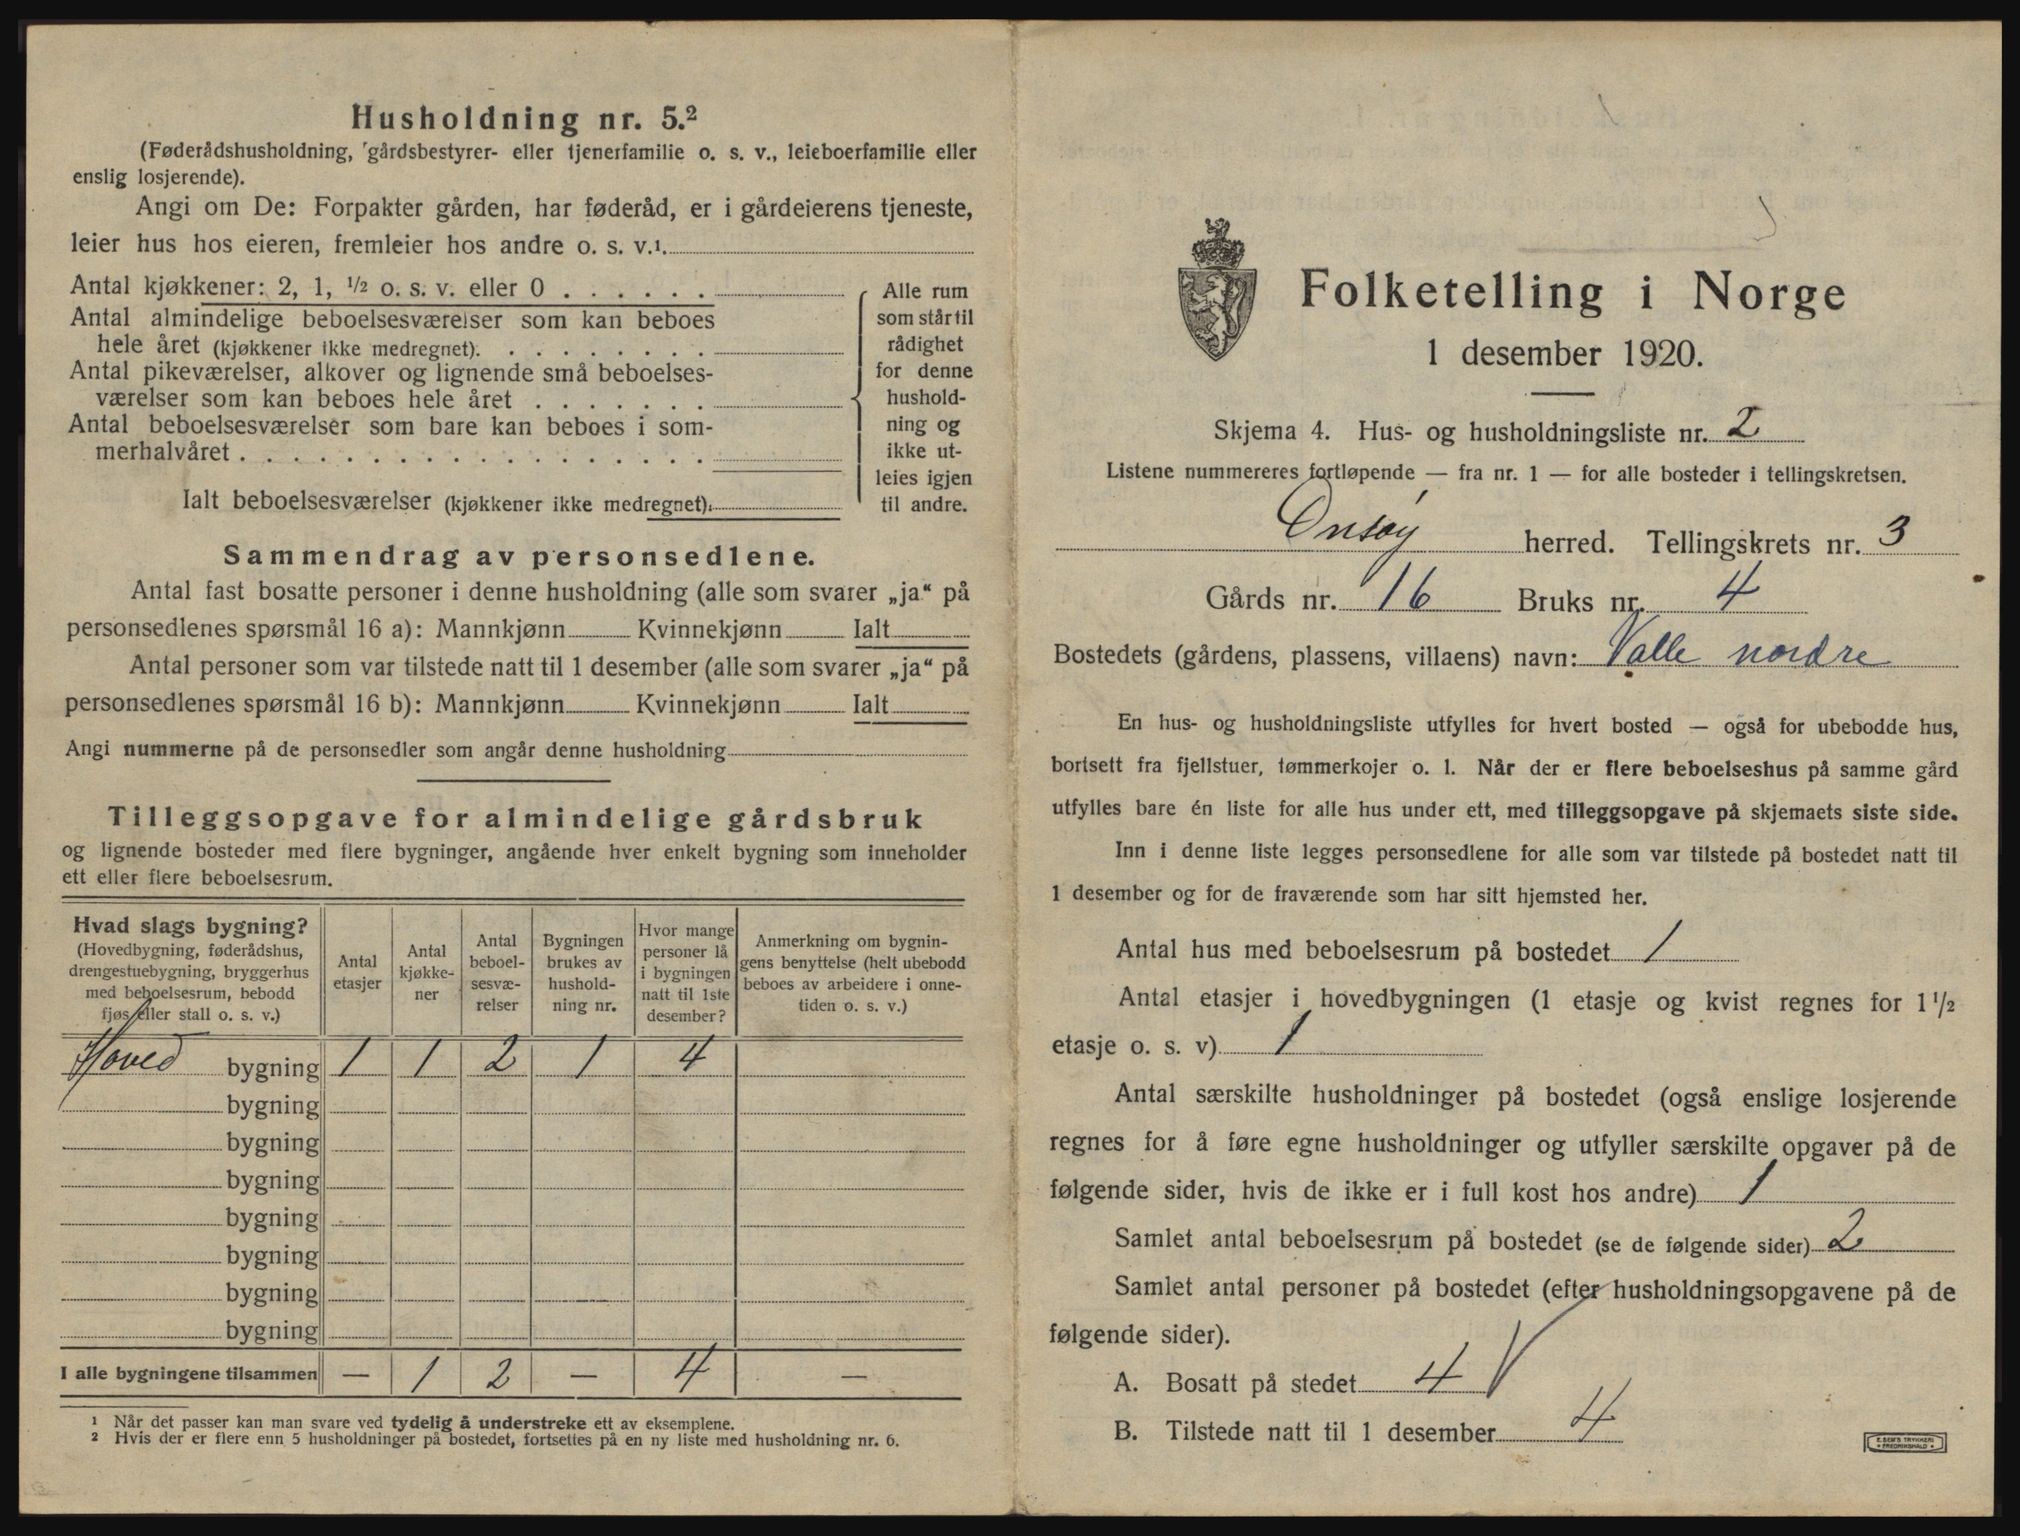 Husholdning nr. 5.²
(Føderådshusholdning, gårdsbestyrer- eller tjenerfamilie o. s. v., leieboerfamilie eller
enslig losjerende).
Angi om De: Forpakter gården, har føderåd, er i gårdeierens tjeneste,
leier hus hos eieren, fremleier hos andre o. s. v.¹
Antal kjøkkener: 2, 1, ½ o. s. v. eller 0 . . . . . .
Antal almindelige beboelsesværelser som kan beboes
hele året (kjøkkener ikke medregnet). . . . . . . . .
Antal pikeværelser, alkover og lignende små beboelses-
værelser som kan beboes hele året . . . . . . .
Antal beboelsesværelser som bare kan beboes i som-
merhalvåret . . . . . . . . . . . . . . . . . .
Ialt beboelsesværelser (kjøkkener ikke medregnet).
Alle rum
som står til
rådighet
for denne
hushold-
ning og
ikke ut-
leies igjen
til andre.
Sammendrag av personsedlene.
Antal fast bosatte personer i denne husholdning (alle som svarer „ja“ på
personsedlenes spørsmål 16 a): Mannkjønn Kvinnekjønn Ialt
Antal personer som var tilstede natt til 1 desember (alle som svarer „ja“ på
personsedlenes spørsmål 16 b): Mannkjønn Kvinnekjønn Ialt
Angi nummerne på de personsedler som angår denne husholdning
Tilleggsopgave for almindelige gårdsbruk
og lignende bosteder med flere bygninger, angående hver enkelt bygning som inneholder
ett eller flere beboelsesrum.
Hvad slags bygning?
(Hovedbygning, føderådshus,
drengestuebygning, bryggerhus
med beboelsesrum, bebodd
fjøs eller stall o. s. v.)
Antal
etasjer
Antal
kjøkke-
ner
Antal
beboel-
sesvæ-
relser
Bygningen
brukes av
hushold-
ning nr.
Hvor mange
personer lå
i bygningen
natt til 1ste
desember?
Anmerkning om bygnin-
gens benyttelse (helt ubebodd
beboes av arbeidere i onne-
tiden o. s. v.)
Hoved bygning 1 1 2 1 4
bygning
bygning
bygning
bygning
bygning
bygning
bygning
I alle bygningene tilsammen — 1 2 — 4 —
¹ Når det passer kan man svare ved tydelig å understreke ett av eksemplene.
² Hvis der er flere enn 5 husholdninger på bostedet, fortsettes på en ny liste med husholdning nr. 6.
Folketelling i Norge
1 desember 1920.
Skjema 4. Hus- og husholdningsliste nr. 2
Listene nummereres fortløpende — fra nr. 1 — for alle bosteder i tellingskretsen.
Onsøy herred. Tellingskrets nr. 3
Gårds nr. 16 Bruks nr. 4
Bostedets (gårdens, plassens, villaens) navn: Valle nordre
En hus- og husholdningsliste utfylles for hvert bosted — også for ubebodde hus,
bortsett fra fjellstuer, tømmerkojer o. l. Når der er flere beboelseshus på samme gård
utfylles bare én liste for alle hus under ett, med tilleggsopgave på skjemaets siste side.
Inn i denne liste legges personsedlene for alle som var tilstede på bostedet natt til
1 desember og for de fraværende som har sitt hjemsted her.
Antal hus med beboelsesrum på bostedet 1
Antal etasjer i hovedbygningen (1 etasje og kvist regnes for 1 ½
etasje o. s. v) 1
Antal særskilte husholdninger på bostedet (også enslige losjerende
regnes for å føre egne husholdninger og utfyller særskilte opgaver på de
følgende sider, hvis de ikke er i full kost hos andre) 1
Samlet antal beboelsesrum på bostedet (se de følgende sider) 2
Samlet antal personer på bostedet (efter husholdningsopgavene på de
følgende sider).
A. Bosatt på stedet 4
B. Tilstede natt til 1 desember 4
E. SEM'S TRYKKERI
• FREDRIKSHALD •